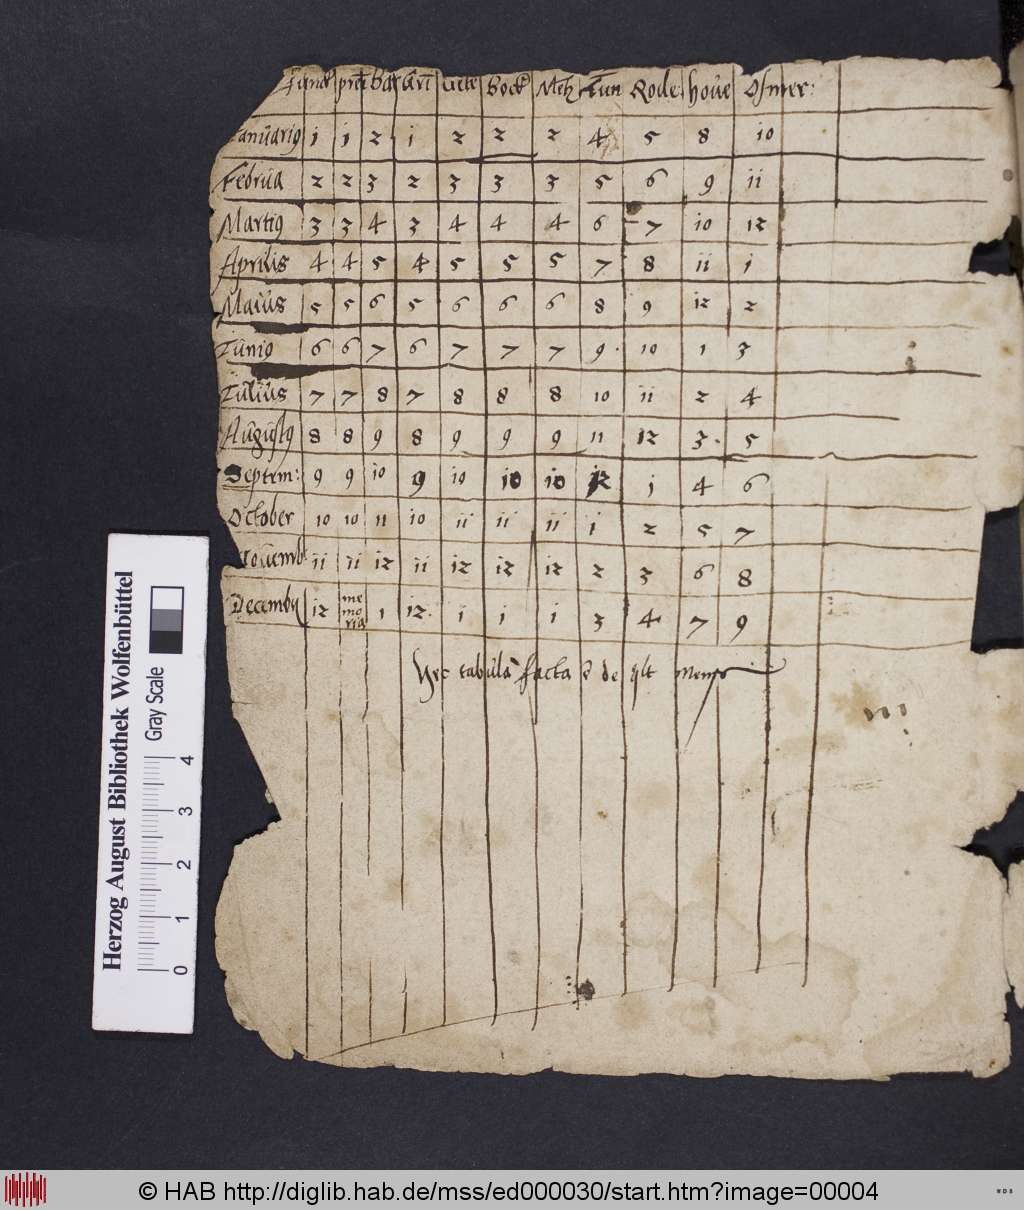 Rode hoŭe Osmer:
Januario 1 1 2 1 2 2 2 4 5 8 10
Februa 2 2 3 2 3 3 3 5 6 9 11
Martiꝰ 3 3 4 3 4 4 4 6 7 10 12
Aprilis 4 4 5 4 5 5 5 7 8 11 1
Maiŭs 5 5 6 5 6 6 6 8 9 12 2
Iŭniꝰ 6 6 7 6 7 7 7 9 10 1 3
Iŭliŭs 7 7 8 7 8 8 8 10 11 2 4
Aŭgŭstꝰ 8 8 9 8 9 9 9 11 12 3 5
Septem: 9 9 10 9 10 10 10 12 1 4 6
October 10 10 11 10 11 11 11 1 2 5 7
Noŭemb 11 11 12 11 12 12 12 2 3 6 8
Decemb 12 me mo ria 1 12 1 1 1 3 4 7 9
tabŭla facta de
Herzog August Bibliothek Wolfenbüttel
Gray Scale
0 1 2 3 4
© HAB http://diglib.hab.de/mss/ed000030/start.htm?image=00004